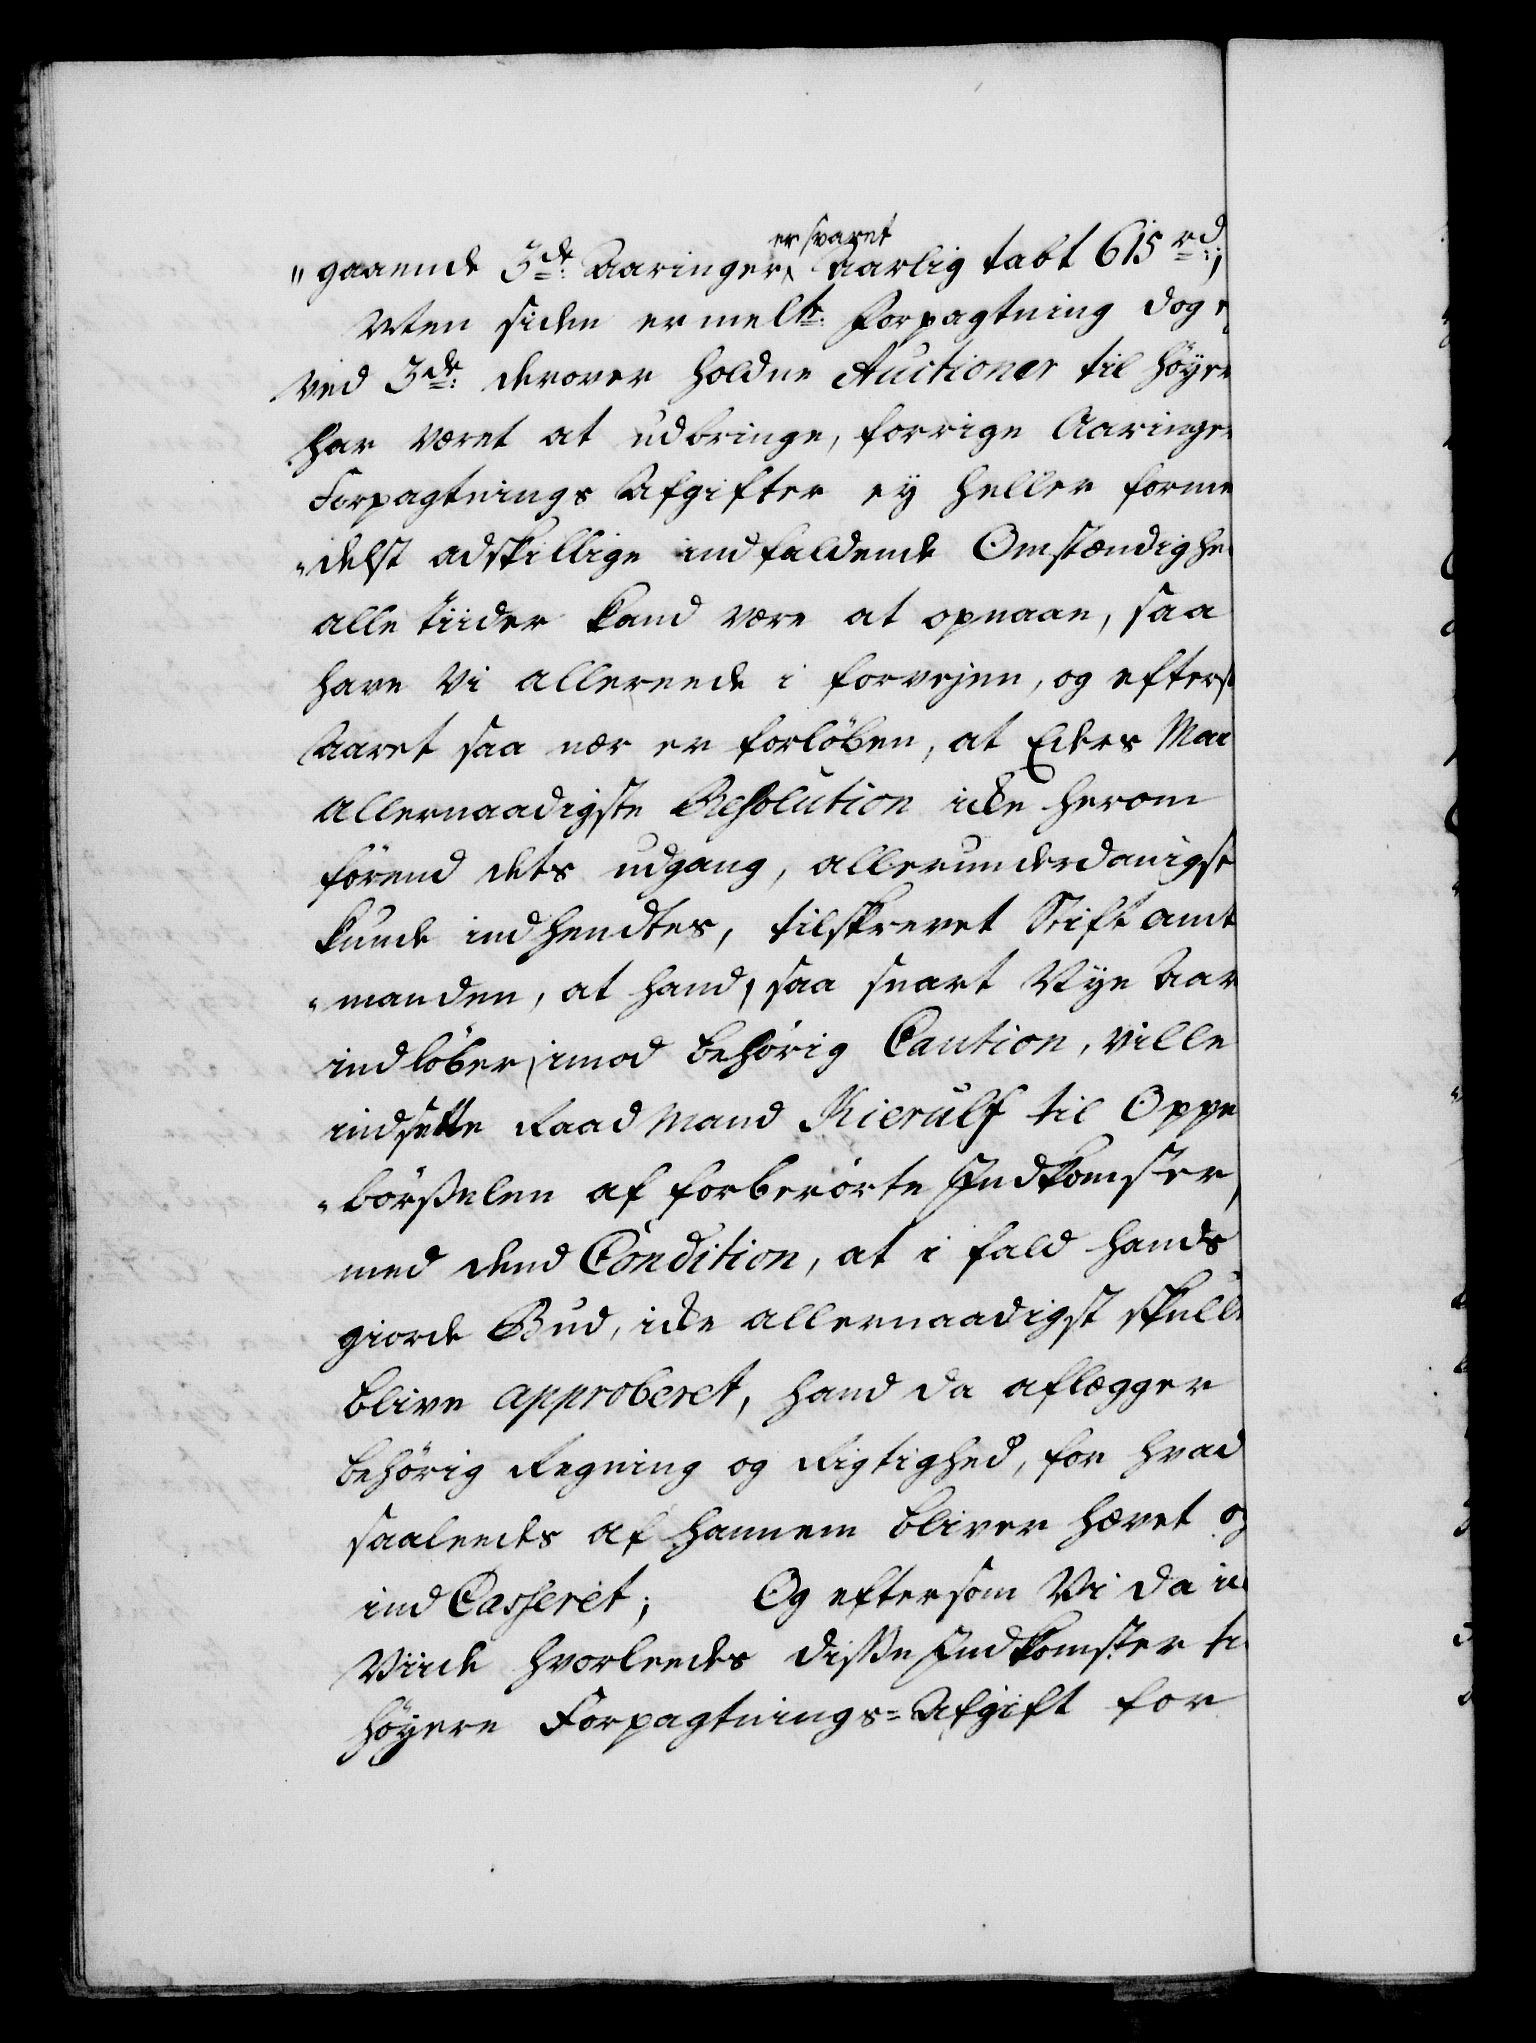 er svaret
"gaaende 3de: Aaringer, Aarlig tabt 615 rd:;
Men siden ermelte: Forpagtning dog e
ved 3de: derover holdne Auctioner til høyer
har været at udbringe, forrige Aaringe
Forpagtnings Afgifter ey heller forme
"delst adskillige indfaldende Omstændighe
alle tiider kand være at opnaae, saa
have Vi allereede i forvejen, og efters
Aaret saa nær er forløben, at Eders Ma
allernaadigste Resolution icke herom
förend dets udgang, allerunderdanigst
kunde indhendtes, tilskrevet Stiftamt
"manden, at hand, saa snart Nye Aar
indlöber, imod behörig Caution, ville
indsette Raadmand Kierulf til Oppe
"börselen af forberörte Indkomster,
med dend Condition, at i fald hands
giorde Bud, icke allernaadigst skulle
blive approberet, hand da aflægger
behörig Regning og Rigtighed, for hvad
saaleedes af hannem bliver hævet og
ind Casseret; Og eftersom Vi da i
Viide hvorleedes disse Indkomster ti
höyere Forpagtnings=Afgift for